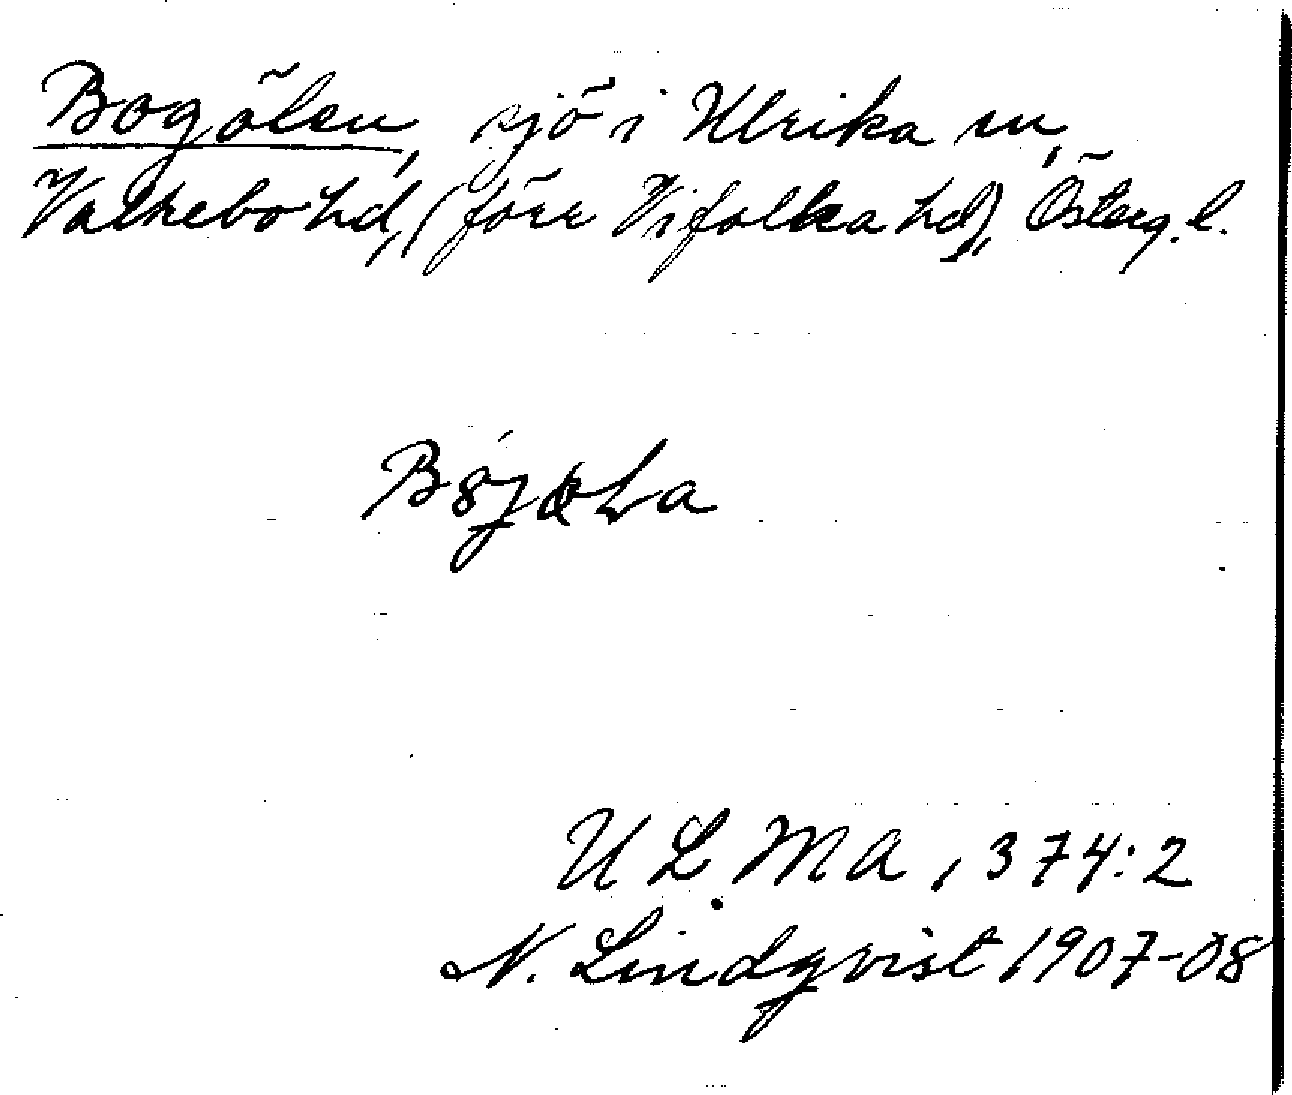 Bogölen, sjö i Ulrika sn,
Valkebo hd, (förr Vifolka hd), Österg. l.
ULMA, 374:2
N. Lindqvist 1907-08